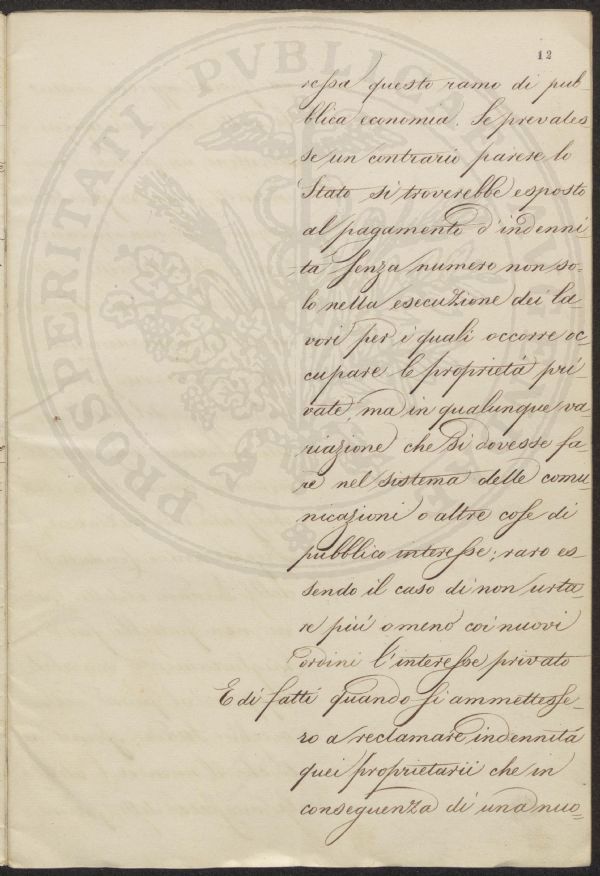 12
ressa questo ramo di pub-
blica economia. Se prevales
se un contrario parere lo
Stato si troverebbe esposto
al pagamento d'indenni-
tà senza numero non so-
lo nella esecuzione dei la-
vori per i quali occorre oc-
cupare le proprietà pri-
vate, ma in qualunque va-
riazione che si dovesse fa-
re nel sistema delle comu
nicazioni o altre cose di
pubblico interesse; raro es-
sendo il caso di non urta-
re più o meno coi nuovi
ordini l'interesse privato
E di fatti quando si ammettesse-
ro a reclamare indennità
quei proprietarii che in
conseguenza di una nuo=
PROSPERITATI PVBLICAE